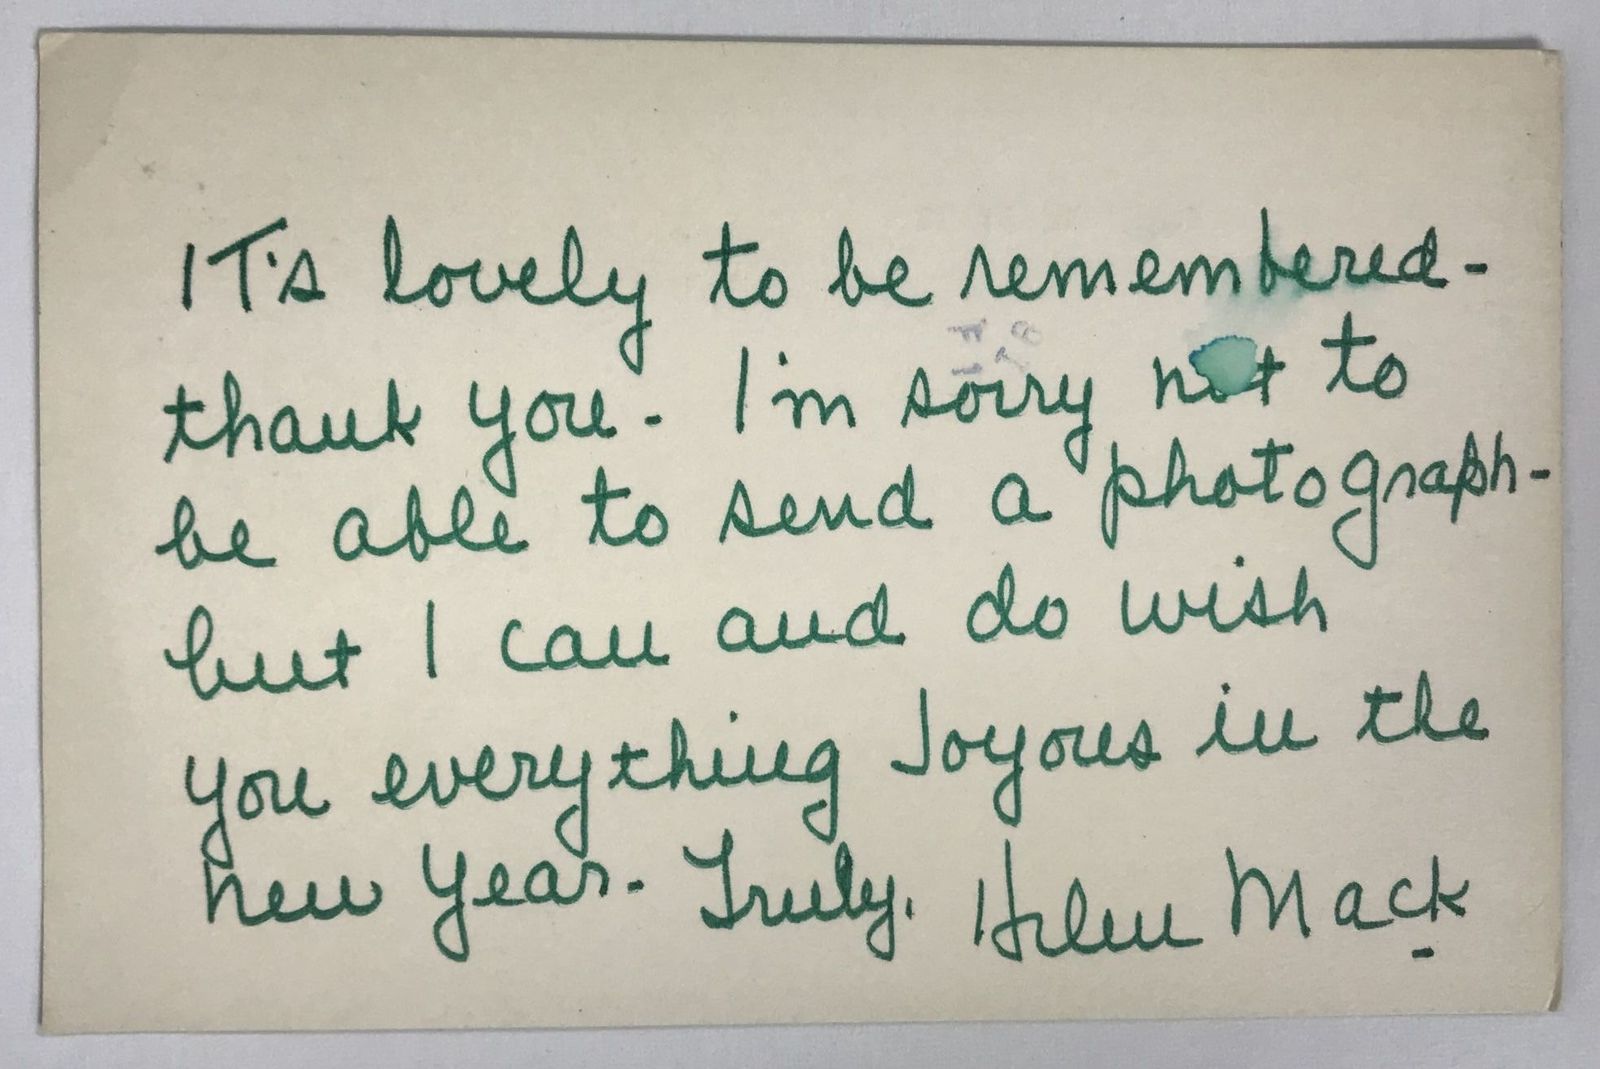 IT's lovely to be remembered-
thank you- I'm sorry not to
be able to send a photograph-
but I can and do wish
you everything Joyous in the
new year- Truly, Helen Mack